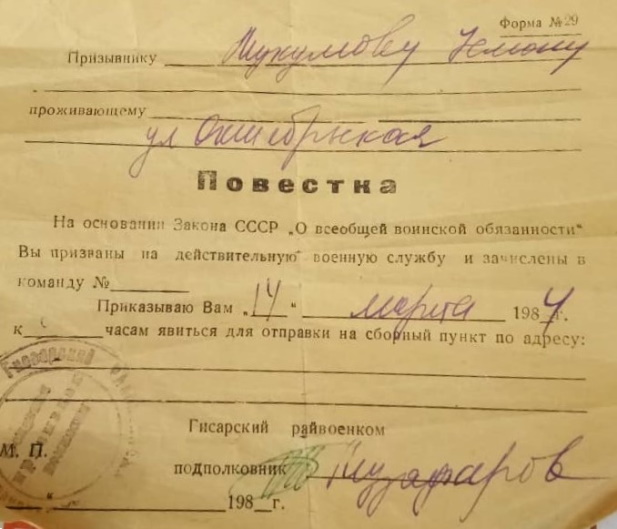 Форма №29
Призывнику Шукумову Усмону
проживающему
ул Октябрьская
Повестка
На основании Закона СССР „О всеобщей воинской обязанности“
Вы призваны на действительную военную службу и зачислены в
команду №
Приказываю Вам „14“ марта 1984 г.
к часам явиться для отправки на сборный пункт по адресу:
Гисарский
Гисарский райвоенком
М. П.
подполковник Музафаров
198 г.